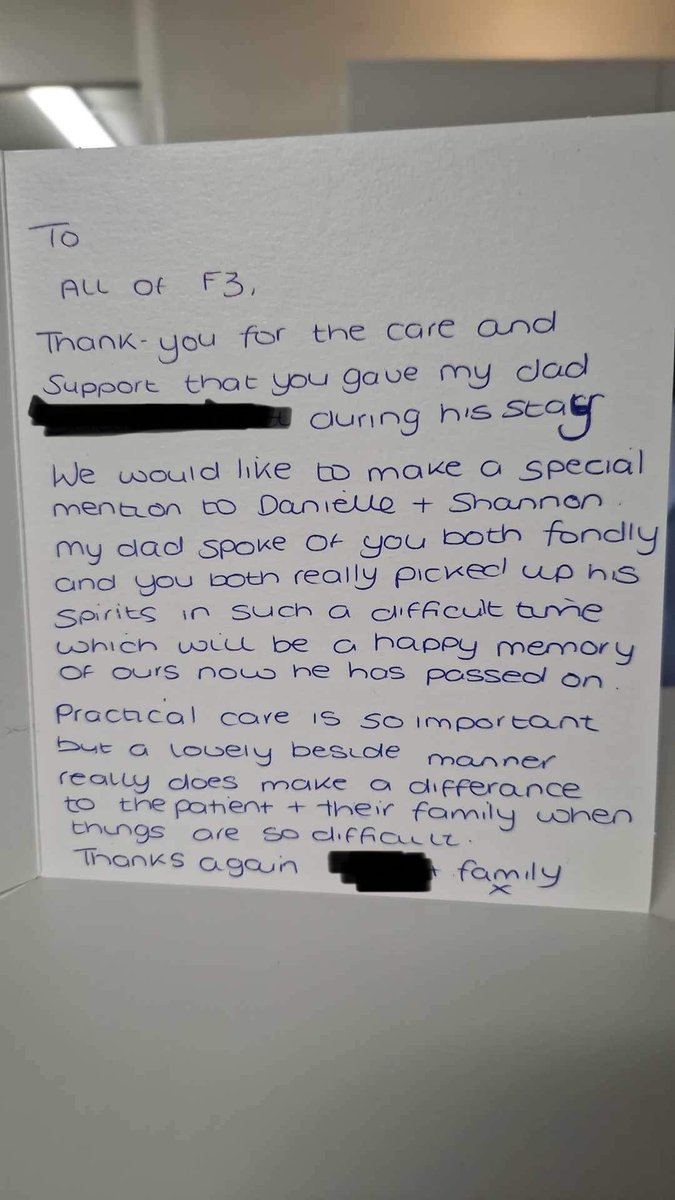 To
ALL OF F3,
Thank-you for the care and
Support that you gave my dad
during his stay
We would like to make a special
mention to Danielle + Shannon.
my dad spoke of you both fondly
and you both really picked up his
spirits in such a difficult time
which will be a happy memory
of ours now he has passed on.
Practical care is so important
but a lovely beside manner
really does make a differance
to the patient + their family when
things are so difficult.
Thanks again + family
x